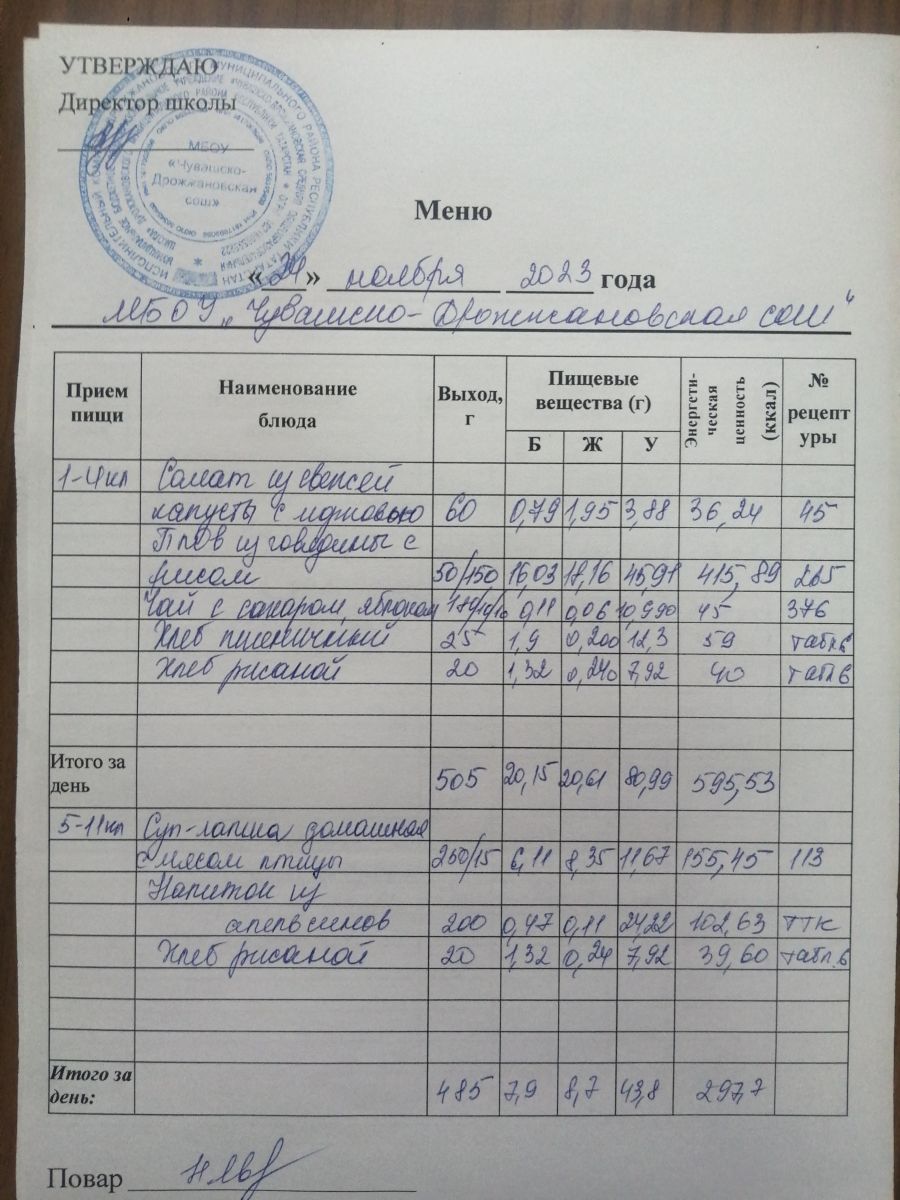 УТВЕРЖДАЮ
Директор школы
МБОУ
«Чувашско-
Дрожжановская
сош»
Меню
«24» ноября 2023 года
МБОУ „Чувашско-Дрожжановская сош"
Прием пищи Наименование блюда Выход, г Пищевые вещества (г) Энергети-ческая ценность (ккал) № рецепт уры
Б Ж У
1-4кл Салат из свежей
капусты с морковью 60 0,79 1,95 3,88 36,24 45
Плов из говядины с
рисом 50/150 16,03 18,16 45,91 415,89 265
Чай с сахаром, яблоком 180/10/10 0,11 0,06 10,990 45 376
Хлеб пшеничный 25 1,9 0,200 12,3 59 табл.6
Хлеб ржаной 20 1,32 0,240 7,92 40 табл6
Итого за день 505 20,15 20,61 80,99 595,53
5-11кл Суп-лапша домашняя
с мясом птицы 250/15 6,11 8,35 11,67 155,45 113
Напиток из
апельсинов 200 0,47 0,11 24,22 102,63 ТТК
Хлеб ржаной 20 1,32 0,24 7,92 39,60 табл.6
Итого за день: 485 7,9 8,7 43,8 297,7
Повар